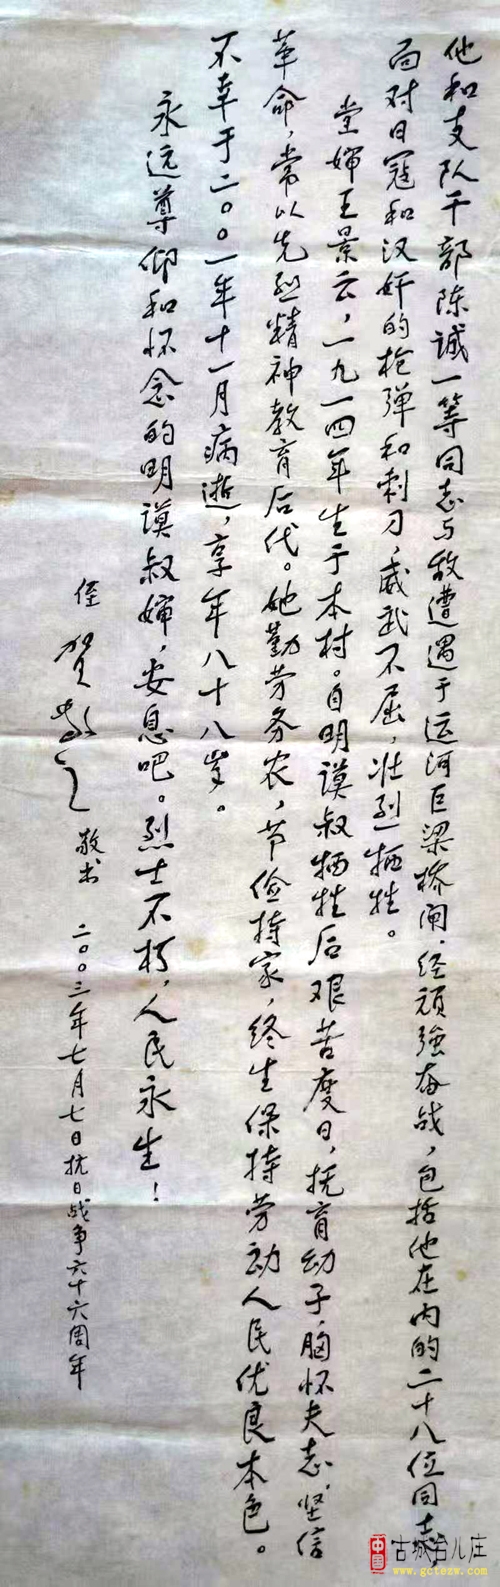 他和支队干部陈诚一等同志与敌遭遇于运河巨梁桥闸.经顽強奋战,包括他在内的二十八位同志,
面对日寇和汉奸的枪弹和刺刀,威武不屈,壮烈牺牲。
堂婶王景云,一九一四年生于本村。自明谟叔牺牲后艰苦度日,抚育幼子,胸怀夫志,坚信
革命,常以先烈精神教育后代。她勤劳务农,节俭持家,终生保持劳动人民优良本色。
不幸于二〇〇一年十一月病逝,享年八十八岁。
永远尊仰和怀念的明谟叔婶,安息吧。烈士不朽,人民永生!
侄 贺敬之 敬书 二〇〇三年七月七日抗日战争六十六周年
中国
古城台儿庄
www.gctezw.com